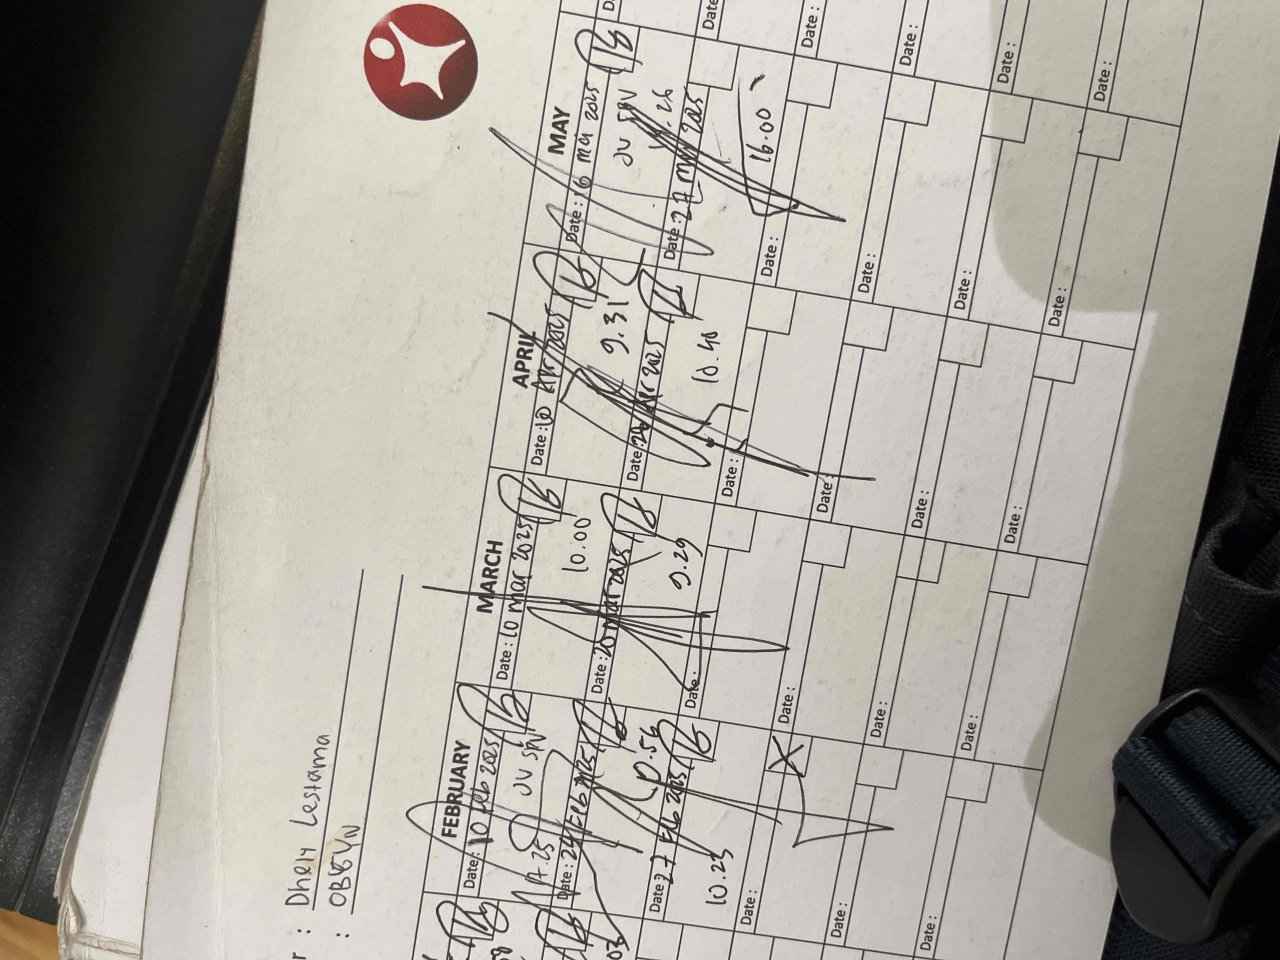 : Dheny Lestama
: OBGYN
FEBRUARY
Date: 10 Feb 2025
JV SPV
17.25
Date: 24 Feb 2025
10.56
Date: 27 Feb 2025
10.23
Date:
Date:
Date:
MARCH
Date: 10 mar 2025
10.00
Date: 20 mar 2025
9.29
Date:
Date:
Date:
Date:
APRIL
Date: 10 Apr 2025
9.31
Date: Apr 2025
10.40
Date:
Date:
Date:
Date:
MAY
Date: 6 mei 2025
JV SPV
Date: 27 mei 2025
16.00
Date:
Date:
Date:
Date:
Date:
Date:
Date:
Date:
Date: